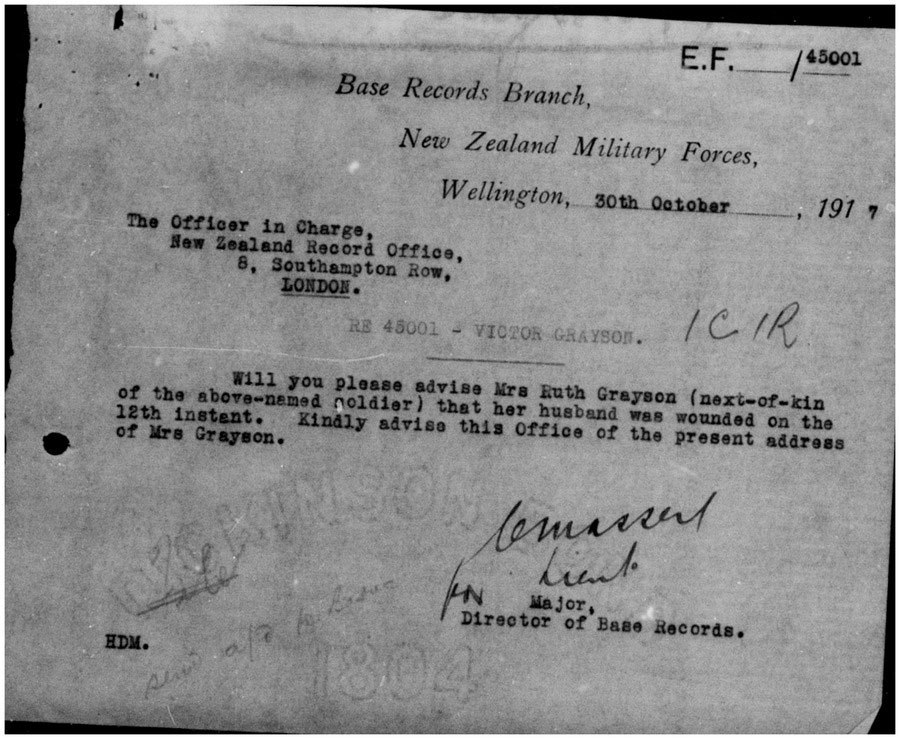 E.F. /45001
Base Records Branch,
New Zealand Military Forces,
Wellington, 30th October, 1917
The Officer in Charge,
New Zealand Record Office,
8, Southampton Row,
LONDON.
RE 45001 - VICTOR GRAYSON. 1C 1R
Will you please advise Mrs Ruth Grayson (next-of-kin
of the above-named soldier) that her husband was wounded on the
12th instant. Kindly advise this Office of the present address
of Mrs Grayson.
Lieut
for Major,
Director of Base Records.
HDM.
1804